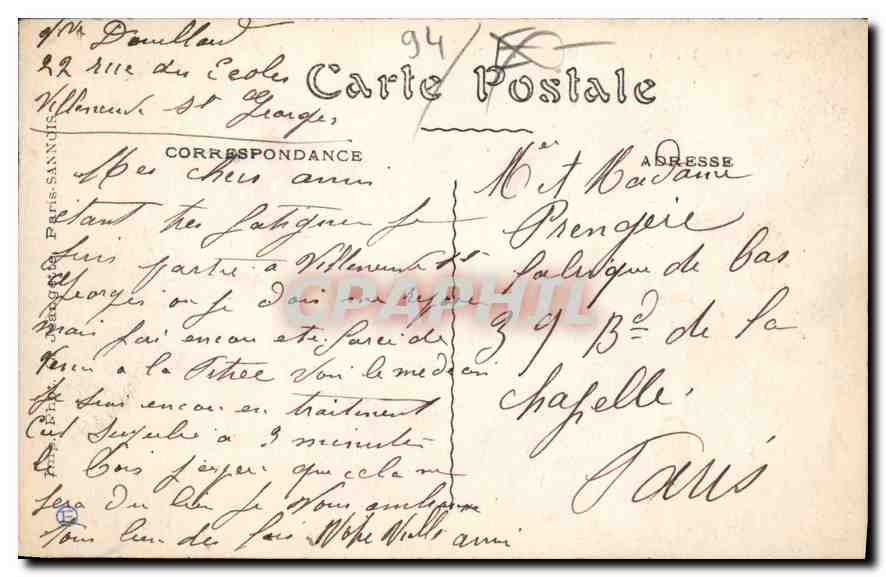 Douillard
22 rue des Ecoles
Villeneuve St Georges
94
Carte Postale
CORRESPONDANCE
ADRESSE
Mes chers amis
étant très fatiguée je
suis partie à Villeneuve St
Georges où je dois me reposer
mais j'ai encore été forcée de
venir a la voir le medecin
je suis encore en traitement
à 3 minutes
le bois j'espere que cela me
fera du bien je vous embrasse
tous bien des fois Votre Vielle amie
Mr et Madame
Prengère
fabrique de bas
39 Bd de la
Chapelle.
Paris
CPAPHIL
Paris-SANNOIS
E